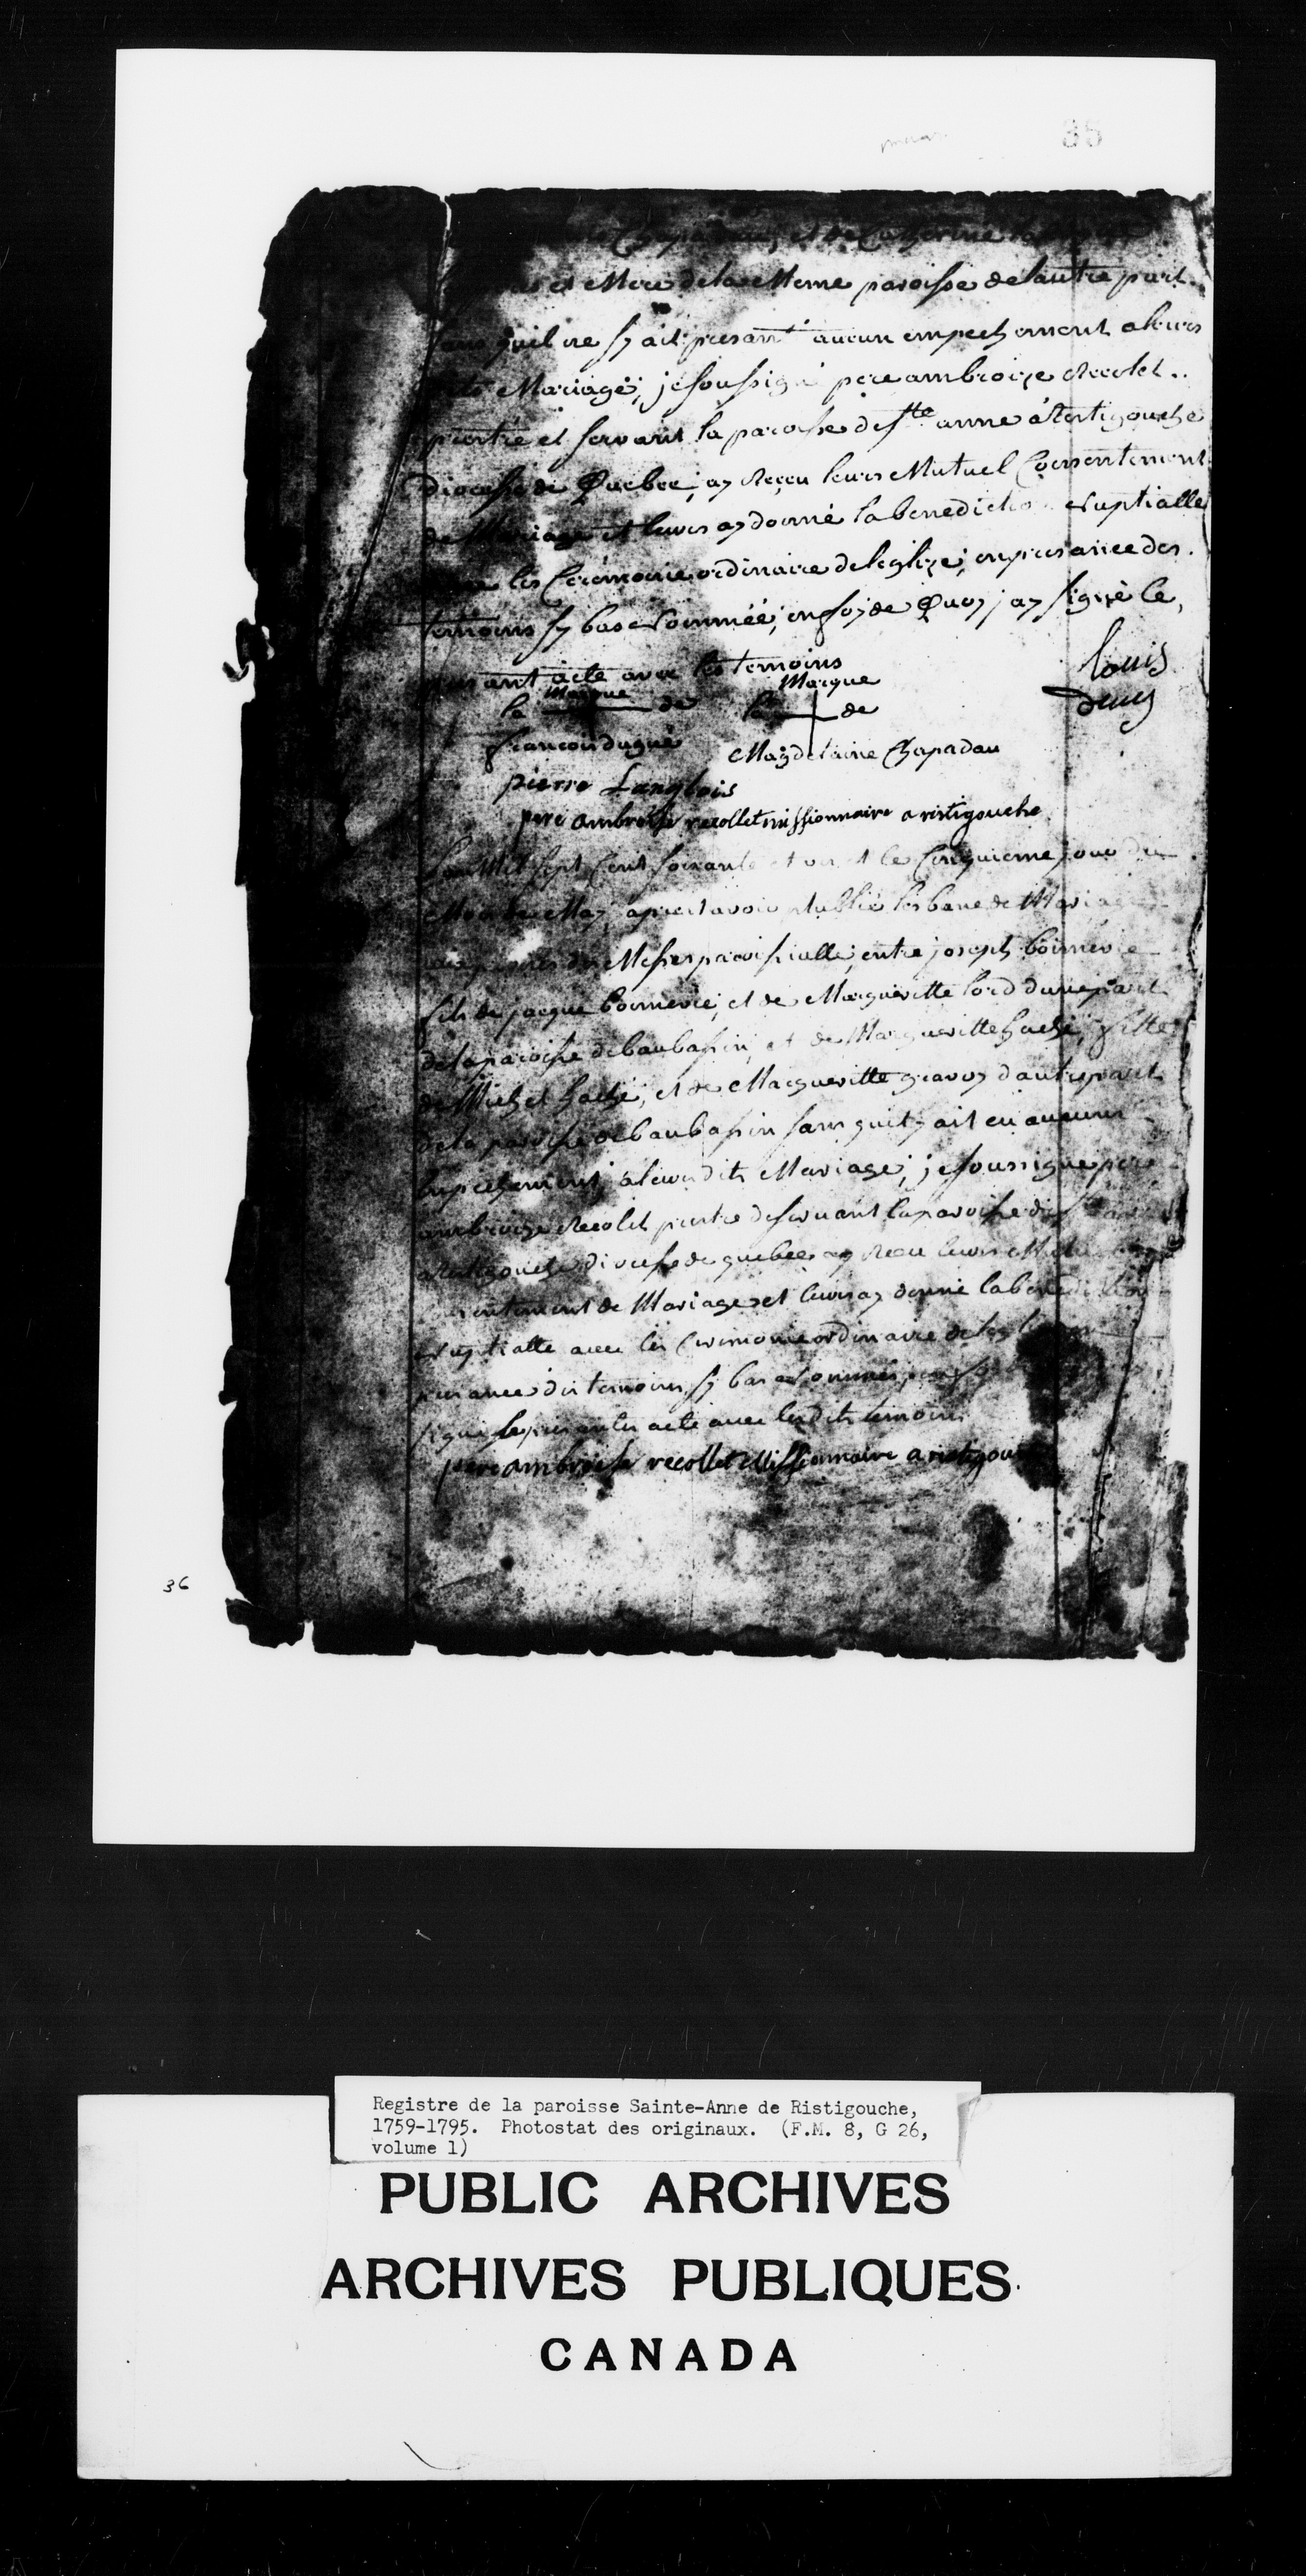 35
et Mere de la Meme paroisse de lautre part
quil ne sy ait presant aucun empechement a leurs
Mariage, je soussigné pere ambroize Recolet..
prêtre et servant la paroisse de ste anne à Restigouche
diocesse de Quebec, ay Reçeu leurs Mutuel Consentement
de Mariage et leurs ay donné la benediction nuptialle
les Ceremonie ordinaire de leglize, en presance des
temoins sy bas Nommée, en foy de Quoy j ay signé le,
presant acte avec les temoins
la Marque de
la Marque de
louis
denis
francois dugué
Magdelaine Chapadau
pierre Langlois
pere ambroise recollet missionnaire a ristigouche
Lan Mil sept Cent soixante et un et le Cinquieme jour du
Mois de May, apres avoir publié les bans de Mariage
Messes paroissialle, entre joseph boimerie
fils de jacque boimerie, et de Margueritte lord dune part
de la paroisse de baubassin, et de Margueritte haché, fille
de Michel haché, et de Margueritte gravoy dautre part
de la paroisse de baubassin sans quil y ait eu aucuns
empechement à leur dits Mariage, je soussigne pere
ambroize Recolet pretre deservant la paroisse de
Restigouche diocesse de quebec ay Receu leurs
sentement de Mariage et leurs ay donné la benediction
Nuptialle avec les Ceremonie ordinaire de leglize en
presance des temoins sy bas Nommés,
signé le presantes acte avec lesdits temoins
pere ambroise recollet Missionnaire a ristigouche
36
Registre de la paroisse Sainte-Anne de Ristigouche,
1759-1795. Photostat des originaux. (F.M. 8, G 26,
volume 1)
PUBLIC ARCHIVES
ARCHIVES PUBLIQUES
CANADA